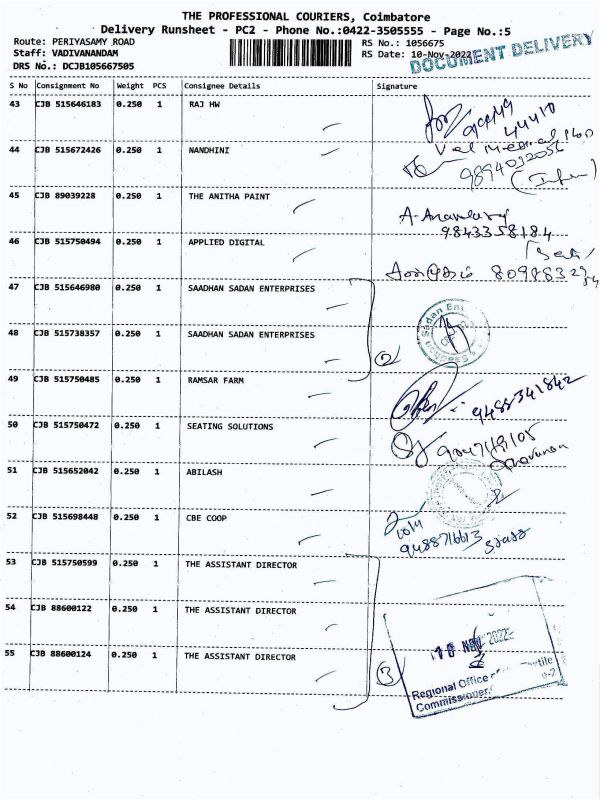 THE PROFESSIONAL COURIERS, Coimbatore
Delivery Runsheet - PC2 - Phone No.:0422-3505555 - Page No.:5
Route: PERIYASAMY ROAD RS No.: 1056675
Staff: VADIVANANDAM RS Date: 10-Nov-2022
DOCUMENT DELIVERY
DRS No.: DCJB105667505
S No Consignment No Weight PCS Consignee Details Signature
43 CJB 515646183 0.250 1 RAJ HW
44 CJB 515672426 0.250 1 NANDHINI
9894032056
45 CJB 89039228 0.250 1 THE ANITHA PAINT
9843358184
46 CJB 515750494 0.250 1 APPLIED DIGITAL
47 CJB 515646980 0.250 1 SAADHAN SADAN ENTERPRISES
48 CJB 515738357 0.250 1 SAADHAN SADAN ENTERPRISES
2
49 CJB 515750485 0.250 1 RAMSAR FARM
9488341842
50 CJB 515750472 0.250 1 SEATING SOLUTIONS
51 CJB 515652042 0.250 1 ABILASH
52 CJB 515698448 0.250 1 CBE COOP
53 CJB 515750599 0.250 1 THE ASSISTANT DIRECTOR
54 CJB 88600122 0.250 1 THE ASSISTANT DIRECTOR
10 NOV 2022
55 CJB 88600124 0.250 1 THE ASSISTANT DIRECTOR
3
Regional Office
Commissioner